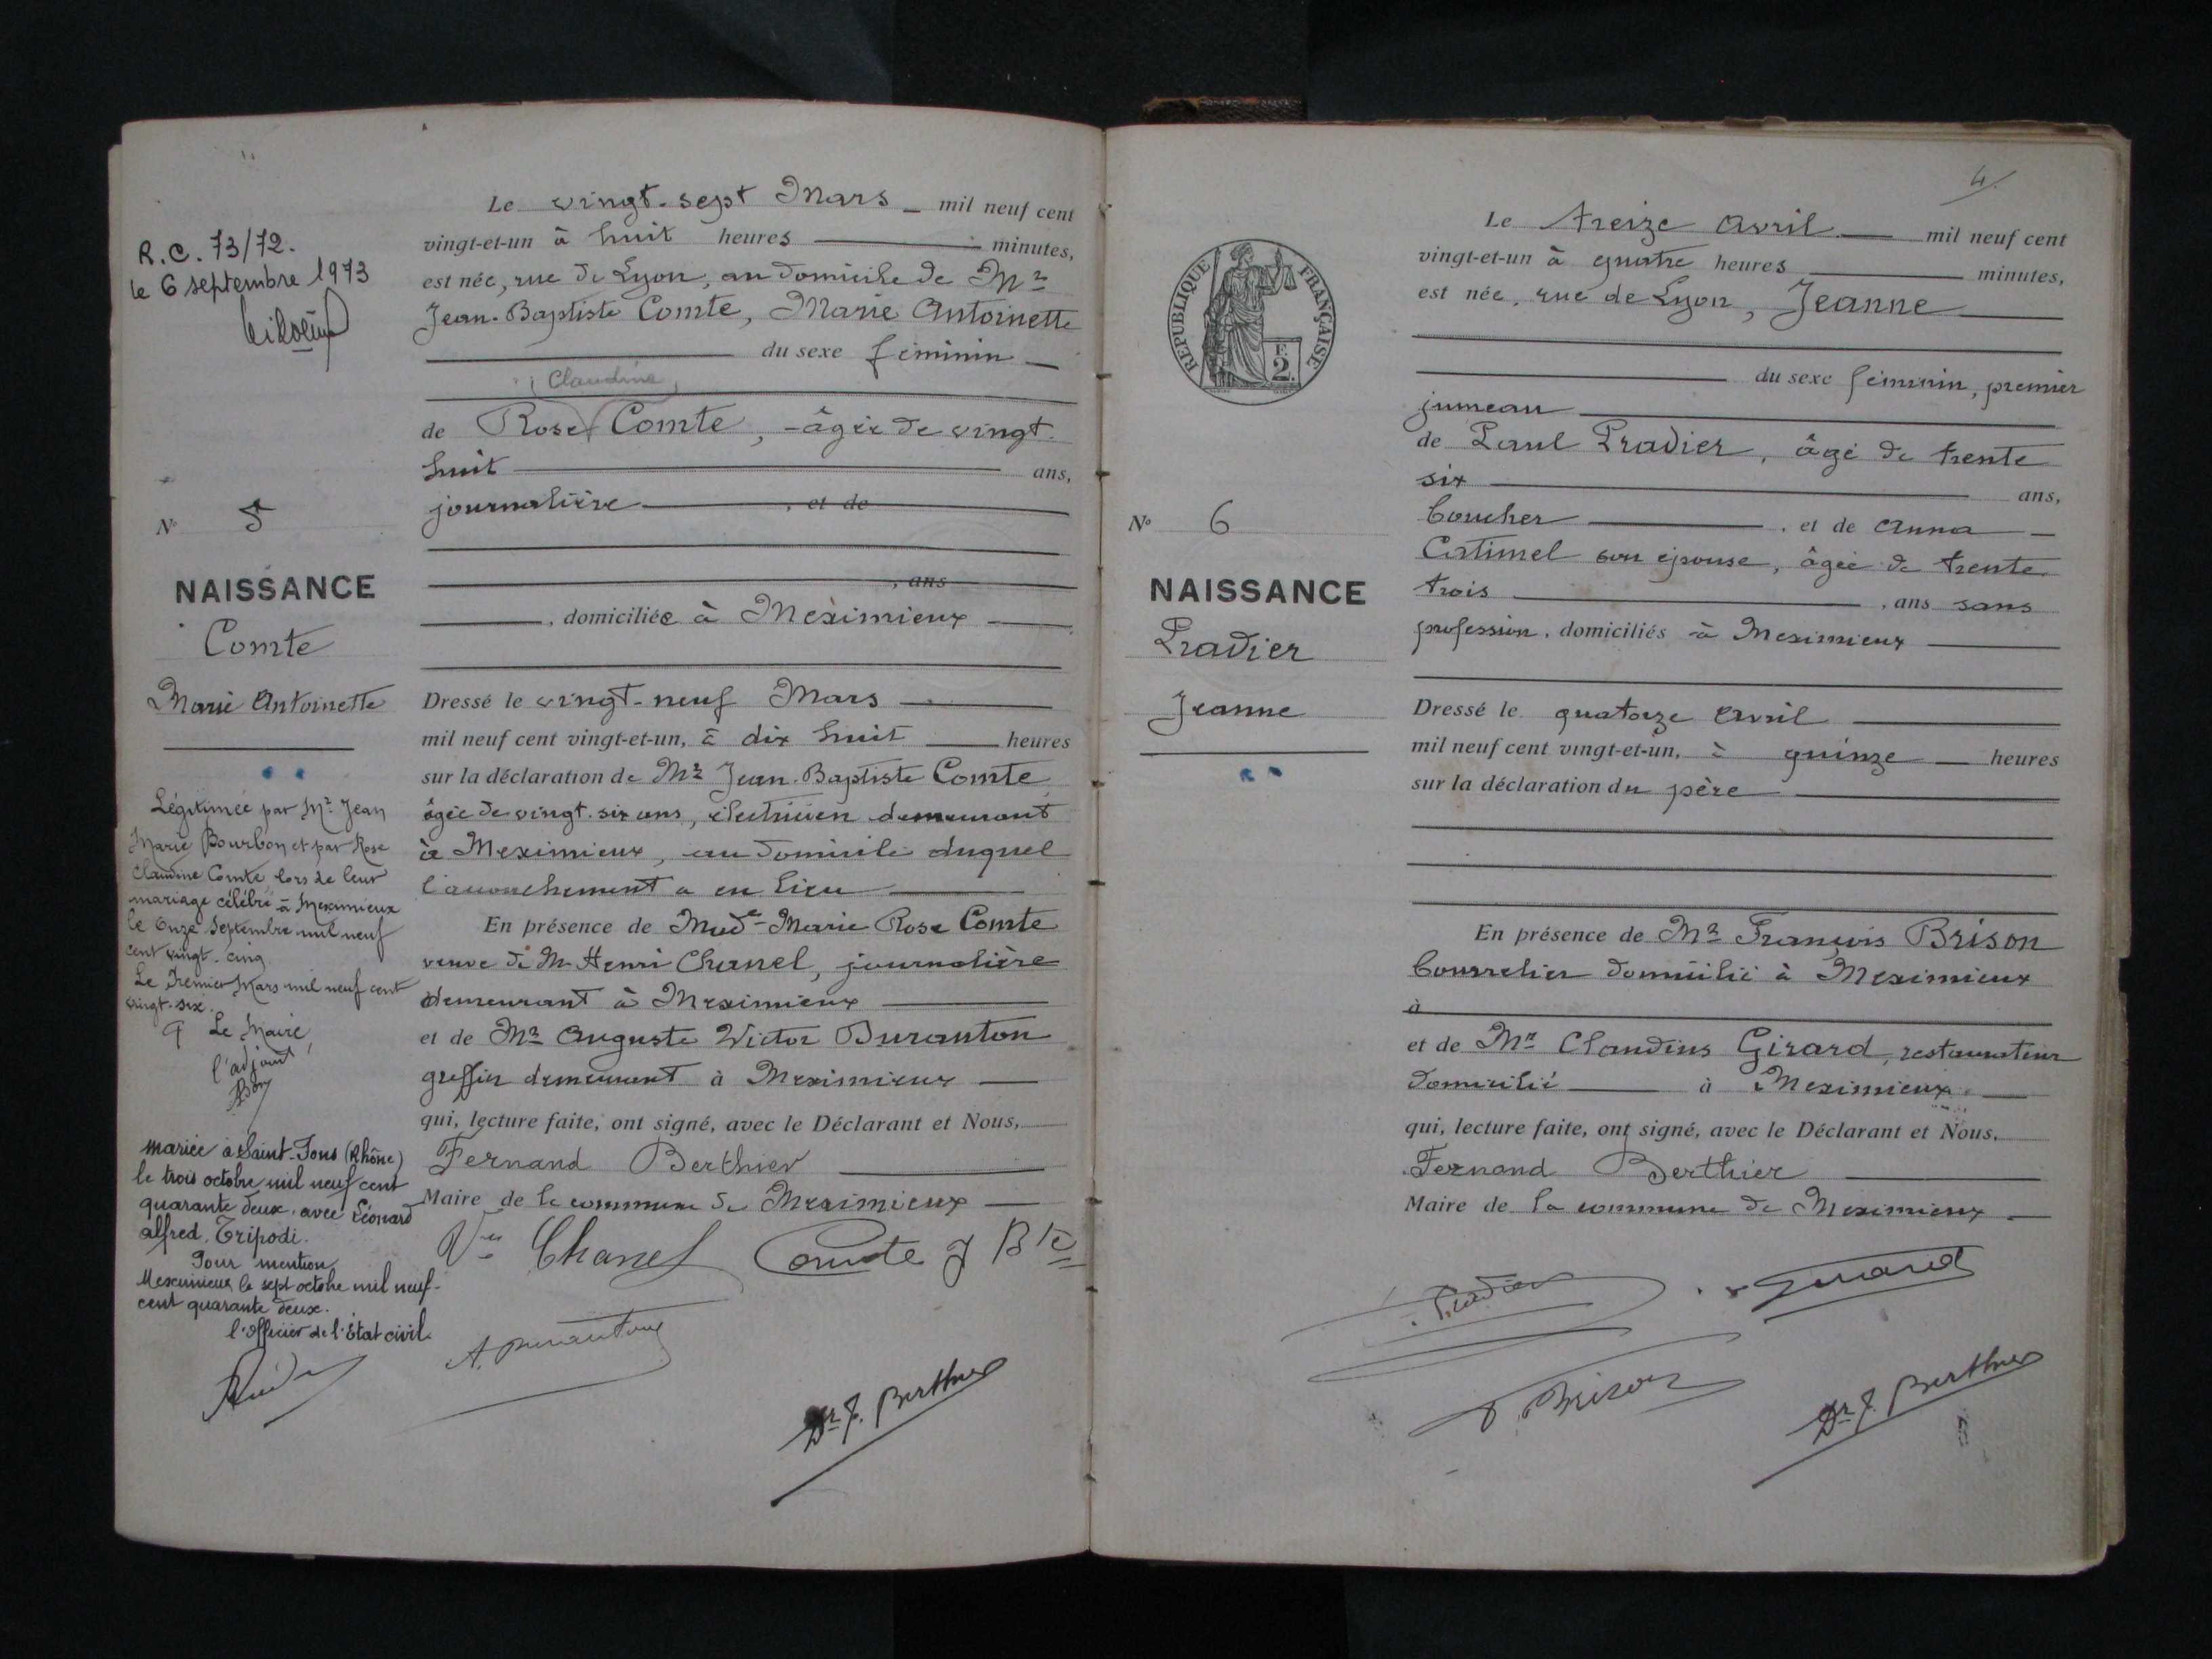 R.C. 73/72.
le 6 septembre 1973
N° 5
NAISSANCE
Comte
Marie Antoinette
Légitimée par Mr Jean
Marie Bourbon et par Rose
Claudine Comte lors de leur
mariage célébré à Meximieux
le onze Septembre mil neuf
cent vingt-cinq
Le Premier Mars mil neuf cent
vingt-six.
Le Maire,
l'adjoint
mariée à Saint-Fons (Rhône)
le trois octobre mil neuf cent
quarante deux avec Léonard
alfred, Tripodi.
Pour mention
Meximieux le sept octobre mil neuf-
cent quarante deux.
l'officier de l'état civil
Le vingt-sept Mars mil neuf cent
vingt-et-un à huit heures minutes,
est née, rue de Lyon, au domicile de Mr
Jean-Baptiste Comte, Marie Antoinette
du sexe féminin
Claudine
de Rose Comte, âgée de vingt-
huit ans,
journalière, et de
, ans
, domiciliée à Meximieux
Dressé le vingt-neuf Mars
mil neuf cent vingt-et-un, à dix huit heures
sur la déclaration de Mr Jean-Baptiste Comte
âgée de vingt-six ans, électricien demeurant
à Meximieux, au domicile duquel
l'accouchement a eu lieu
En présence de Made Marie Rose Comte
veuve de Mr Henri Chanel, journalière
demeurant à Meximieux
et de Mr Auguste Victor Duranton
greffier demeurant à Meximieux
qui, lecture faite, ont signé, avec le Déclarant et Nous,
Fernand Berthier
Maire de la commune de Meximieux
Vve Chanel Comte J Bte
A. Duranton
Dr F. Berthier
4
RÉPUBLIQUE FRANÇAISE
F.
2.
N° 6
NAISSANCE
Pradier
Jeanne
Le treize Avril mil neuf cent
vingt-et-un à quatre heures minutes,
est née, rue de Lyon, Jeanne
du sexe féminin, premier
jumeau
de Paul Pradier, âgé de trente
six ans,
boucher, et de Anna
Catimel son épouse, âgée de trente
trois, ans sans
profession, domiciliés à Meximieux
Dressé le quatorze Avril
mil neuf cent vingt-et-un, à quinze heures
sur la déclaration du père
En présence de Mr François Brison
bourrelier domicilié à Meximieux
à
et de Mr Claudius Girard, restaurateur
domicilié à Meximieux
qui, lecture faite, ont signé, avec le Déclarant et Nous,
Fernand Berthier
Maire de la commune de Meximieux
Pradier Girard
F. Brison
Dr F. Berthier